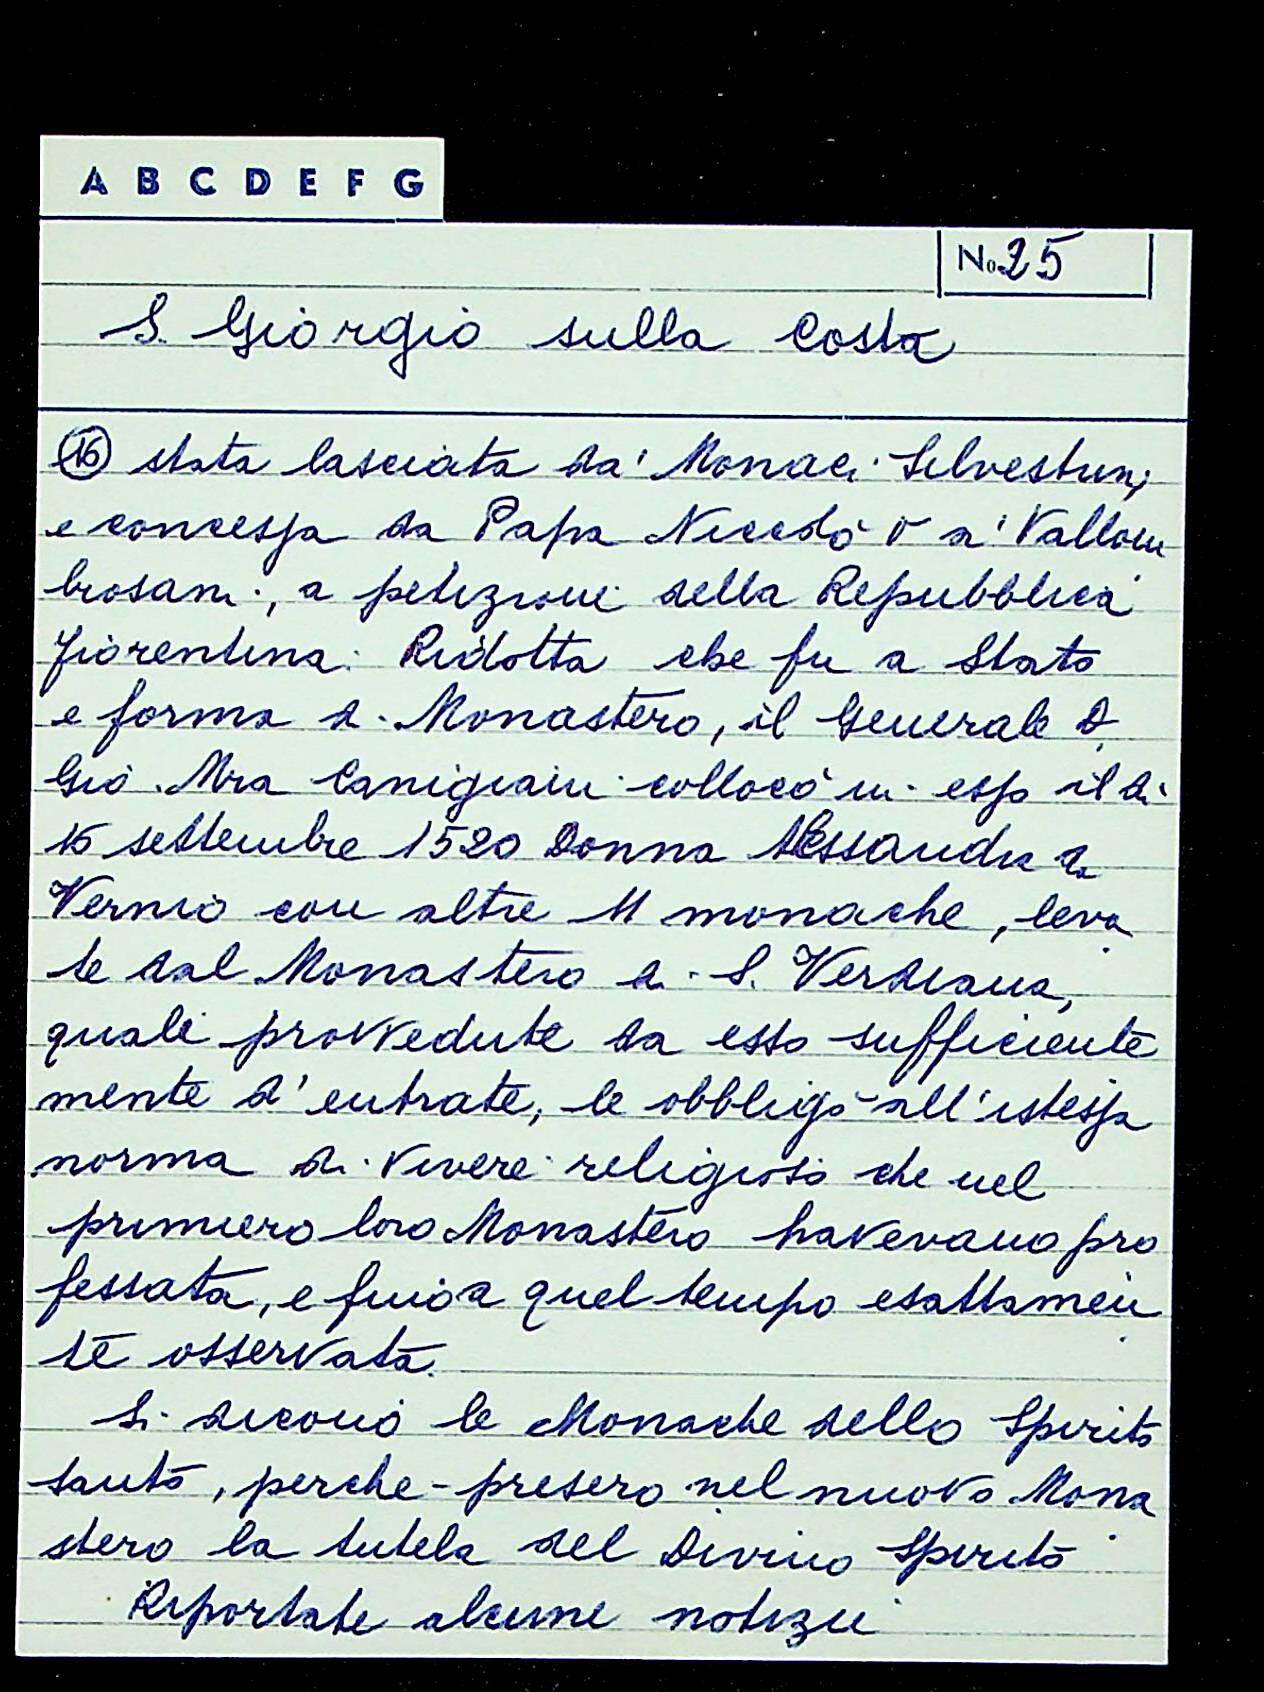 A B C D E F G
No 25
S. Giorgio sulla Costa
16 stata lasciata da' Monaci Silvestrini
e concessa da Papa Niccolò V a' Vallom
brosani, a petizione della Repubblica
fiorentina. Ridotta che fu a Stato
e forma di Monastero, il Generale D.
Giò. Mra Canigiani collocò in esso il dì
16 settembre 1520 Donna Alessandra da
Vernio con altre 11 monache, leva
te dal Monastero di S. Verdiana,
quali provvedute da esso sufficiente
mente d'entrate, le obbligò all'istessa
norma di vivere religioso che nel
primiero loro Monastero havevano pro
fessata, e fino a quel tempo esattamen
te osservata.
Si dicono le Monache dello Spirito
santo, perche presero nel nuovo Mona
stero la tutela del Divino Spirito
Riportate alcune notizie